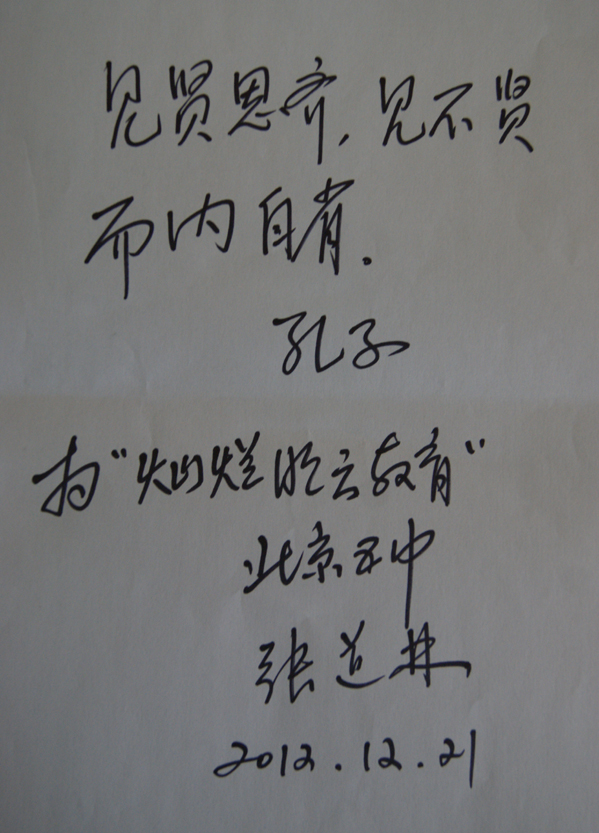 见贤思齐,见不贤
而内自省.
孔子
为“灿烂明云教育”
北京五中
张道林
2012.12.21